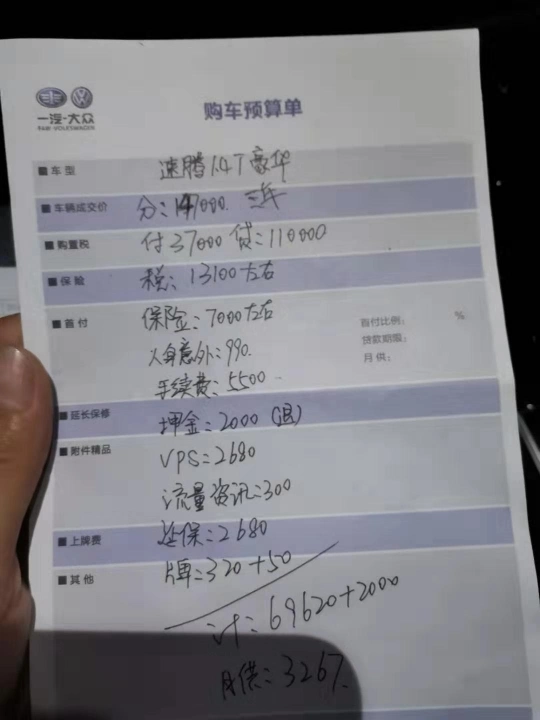 一汽-大众
FAW-VOLKSWAGEN
购车预算单
■ 车 型 速腾1.4T豪华
■ 车辆成交价 分:147000. 三年
■ 购置税 付37000 贷:110000
■ 保 险 税:13100左右
■ 首 付 保险:7000左右 首付比例: %
人身意外:990. 贷款期限:
手续费:5500 月 供:
■ 延长保修 押金:2000(退)
■ 附件精品 VPS:2680
流量资讯:300
■ 上牌费 延保:2680
■ 其 他 牌:320+50
计:69620+2000
月供:3267.